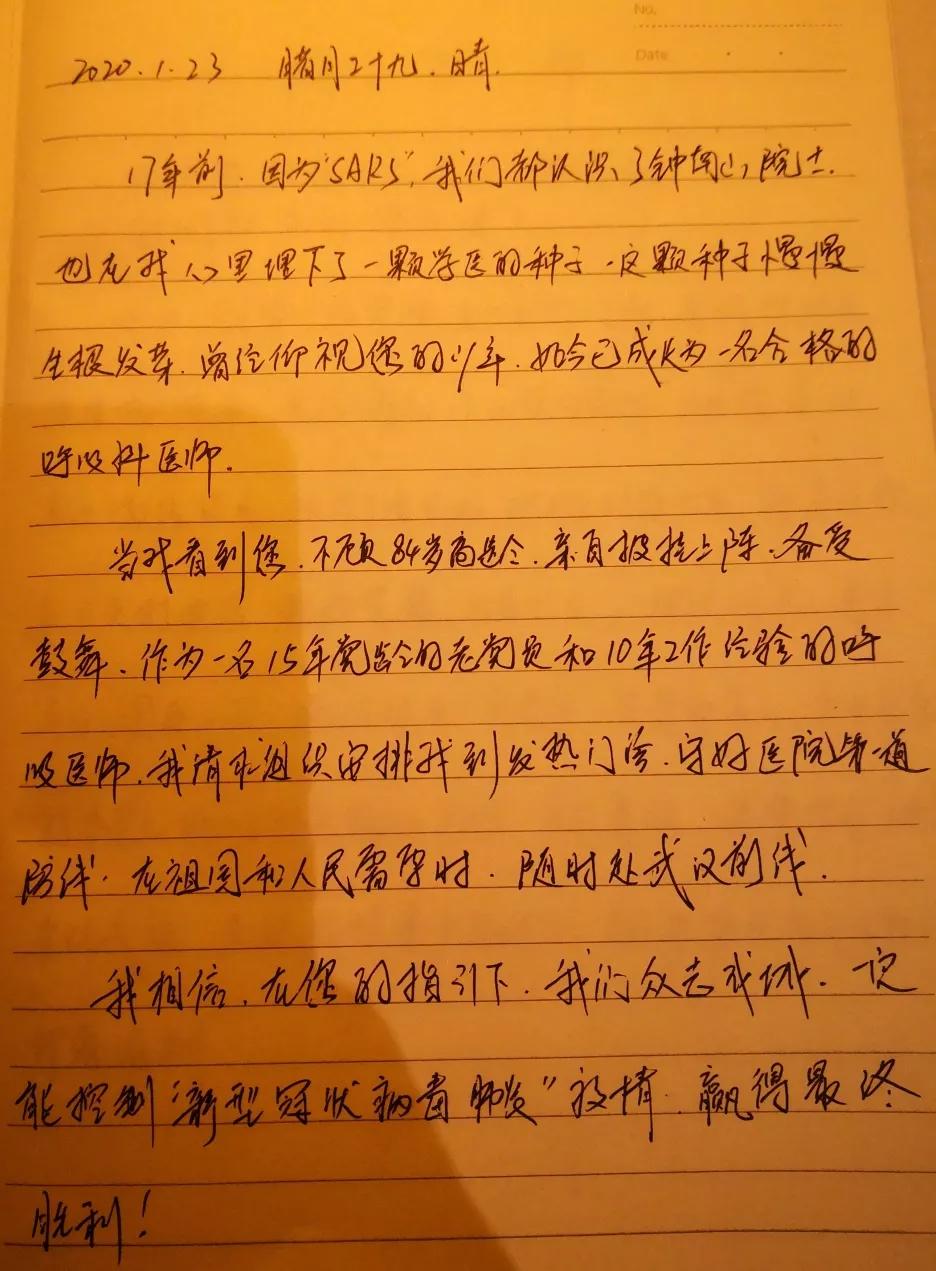 No.
Date
2020.1.23 腊月二十九.晴.
17年前.因为"SARS",我们都认识了钟南山院士.
也在我心里埋下了一颗学医的种子.这颗种子慢慢
生根发芽.曾经仰视您的少年.如今已成长为一名合格的
呼吸科医师.
当我看到您.不顾84岁高龄.亲自披挂上阵.备受
鼓舞.作为一名15年党龄的老党员和10年工作经验的呼
吸医师.我请求组织安排我到发热门诊.守好医院第一道
防线.在祖国和人民需要时.随时赴武汉前线.
我相信.在您的指引下.我们众志成城.一定
能控制"新型冠状病毒肺炎"疫情.赢得最终
胜利!